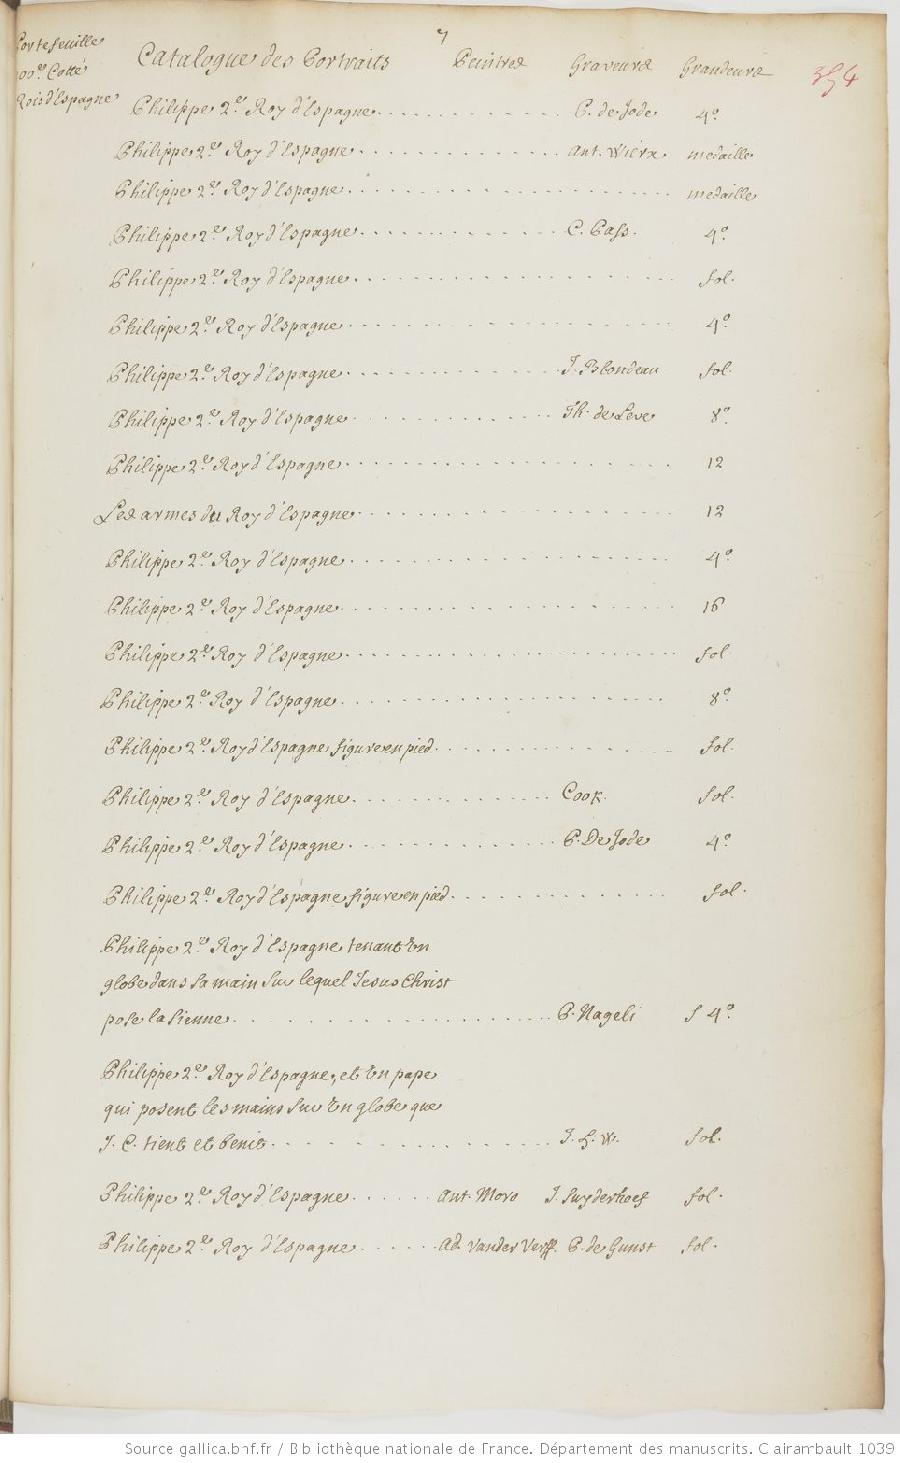 7
Portefeuille Catalogue des Portraits Peintres Graveurs Grandeurs 354
Cotté
Rois d'Espagne
Philippe 2.e Roy d'Espagne . . . . . . P. de Jode 4.o
Philippe 2.e Roy d'Espagne . . . . . . Ant. Wierx medaille
Philippe 2.e Roy d'Espagne . . . . . . medaille
Philippe 2.e Roy d'Espagne . . . . . . C. Pass. 4.o
Philippe 2.e Roy d'Espagne . . . . . . fol.
Philippe 2.e Roy d'Espagne . . . . . . 4.o
Philippe 2.e Roy d'Espagne . . . . . . J. Blondeau fol.
Philippe 2.e Roy d'Espagne . . . . . . Th. de Leve 8.o
Philippe 2.e Roy d'Espagne . . . . . . 12
Les armes du Roy d'Espagne . . . . . . 12
Philippe 2.e Roy d'Espagne . . . . . . 4.o
Philippe 2.e Roy d'Espagne . . . . . . 16
Philippe 2.e Roy d'Espagne . . . . . . fol.
Philippe 2.e Roy d'Espagne . . . . . . 8.o
Philippe 2.e Roy d'Espagne figure en pied . . . . . . fol.
Philippe 2.e Roy d'Espagne . . . . . . Cook. fol.
Philippe 2.e Roy d'Espagne . . . . . . P. De Jode 4.o
Philippe 2.e Roy d'Espagne figure en pied . . . . . . fol.
Philippe 2.e Roy d'Espagne tenant un
globe dans sa main sur lequel Jesus Christ
pose la sienne . . . . . . P. Nageli f 4.o
Philippe 2.e Roy d'Espagne, et un pape
qui posent les mains sur un globe que
J. C. tient et benit . . . . . . J. H. W. fol.
Philippe 2.e Roy d'Espagne . . . . . . Ant. Moro J. Suyderhoef fol.
Philippe 2.e Roy d'Espagne . . . . . . Ad. Vander Verff. P. de Gunst fol.
Source gallica.bnf.fr / Bibliothèque nationale de France. Département des manuscrits. Clairambault 1039